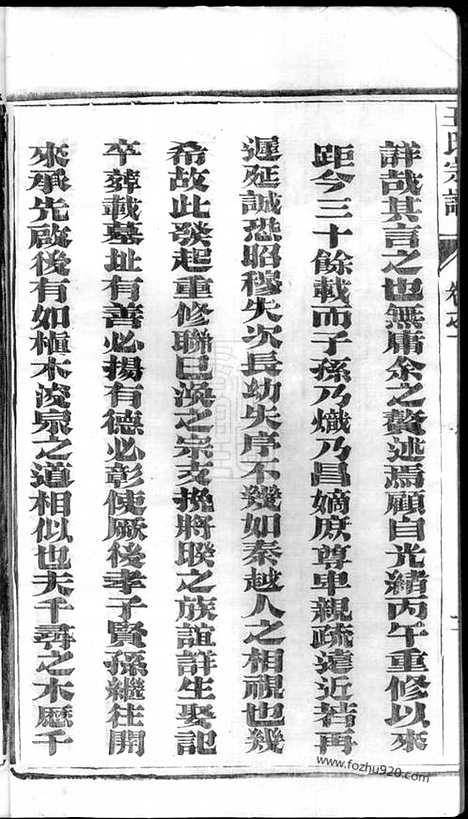 王氏宗譜
卷之一
詳哉其言之也無庸余之贅述焉顧自光緒丙午重修以來
距今三十餘載而子孫乃熾乃昌嫡庶尊卑親疏遠近若再
遲延誠恐昭穆失次長幼失序不幾如秦越人之相視也幾
希故此發起重修聯已渙之宗支挽將暌之族誼詳生娶記
卒葬載墓址有善必揚有德必彰使厥後孝子賢孫繼往開
來承先啟後有如槓木浚泉之道相似也夫千尋之木歷千
www.fozhu920.com